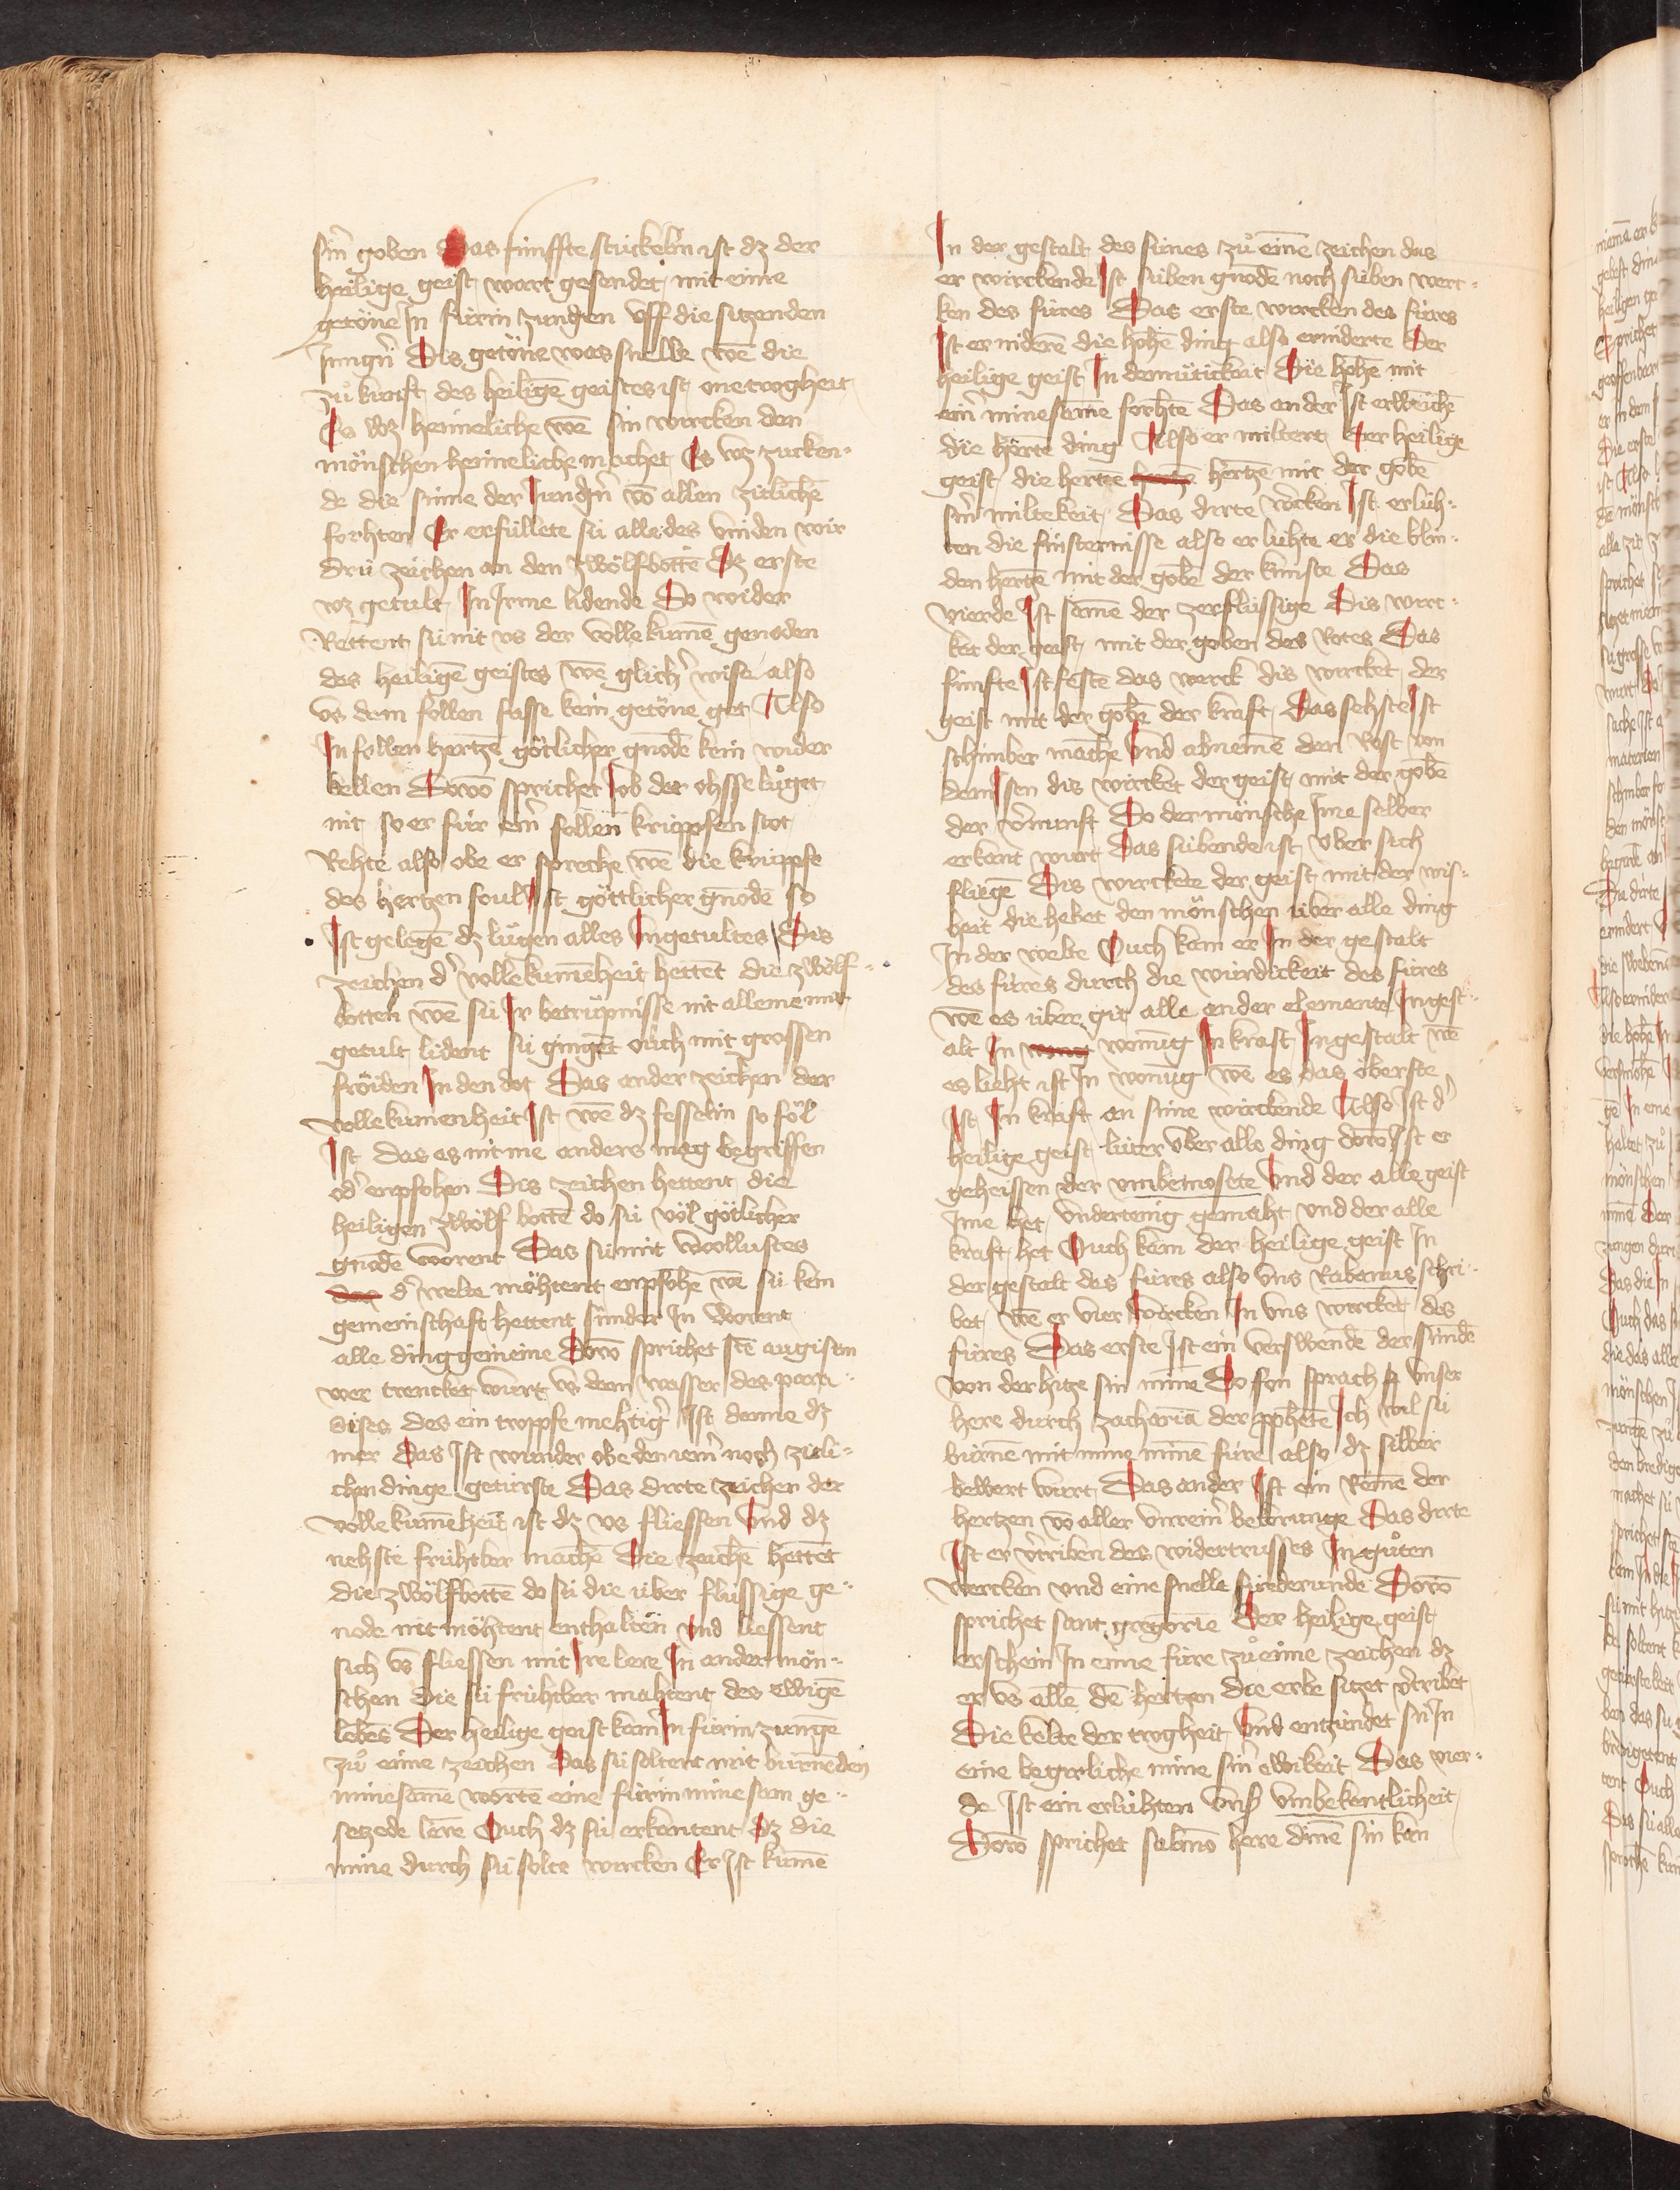 sin̄ goben Das fúnffte stúckelin ist dz der
heilige geist wart gesendet mit eime
getöne In fúrin zungen vff die sitzenden
Jungn̄ Dis getöne was snelle wē die
zů kunft des heiligē geistes ist one trogheit
Es wz heimeliche wē sin wúrcken den
mönschen heimeliche machet Es wz zucken-
de die sinne der Jungn̄ vō allen zitlichē
forhten Er erfúllete sú alle des vinden wir
drú zeichen an den zwölfbottē Dz erste
wz getult In Irme lidende So wider
Rettent sú nit vs der vollekumē genoden
des heiligē geistes wē glich͛ wise also
vs dem follen fasse kein getöne get Also
In follen hertzē götlicher gnodē kein wider
bellen Dovō sprichet Job der ohsse lůget
nit so er fúr ein͛ follen krúppfen stot
Rehte also obe er spreche wē die krúppfe
des hertzen foul Ist göttlicher gnodē so
Ist gelegē dz lúgen alles Ingetultes Dis
zeichen d͛ vollekumēheit hettēt die zwölf-
botten wē sú Ir betrúpnisse nit alleine mit
getult lident sú gingēt ouch mit grossen
fröiden In den dot Das ander zeichen der
vollekumenheit Ist wē dz fesselin so föl
Ist das es nit me anders mag begriffen
od͛ enpfohen Dis zeichen hettent die
heiligen zwölf bottē do sú vol götlicher
gnodē worent Das sú nit wollustes
d͛ welte möhtent enpfohē wā sú kein
gemeinschaft hettent súnder In worent
alle ding gemeine Dovō sprichet sc̄t augistin
wer trencket wurt vs dem wasser des para-
dises des ein troppfe mehtig͛ Ist danne dz
mer Das Ist wunder obe den iem͛ noch zitli-
chen dinge getúrste Das dirte zeichen der
vollekumēheit ist dz vs fliessen Vnd dz
nehste frúhtber machē Die zeichē hettēt
die zwölfbottē do sú die úber flússige ge-
node nit möhtent enthalten Vnd liessent
sich vs fliessen mit Ire lere In ander mön-
schen die sú frúhtber mahtent des ewigē
lebēs Der heilige geist kam In fúrin zungē
zů eime zeichen Das sú soltent mit búrnēden
minesamē wortē eine fúrin minesam ge-
setzede lēre Ouch dz sú erkantent dz die
mine durch sú solte wúrcken Er Ist kumē
In der gestalt des fúres zů eimē zeichen das
er wirckende Ist súben gnodē noch súben wer-
ken des fúres Das erste wúrcken des fúres
Ist er niderē die hohē ding also erniderte Der
heilige geist In demútickeit Die hohē mit
ein͛ minesamē forhtē Das ander Ist erweichē
die hertē ding Also er miltert Der heilige
geist die hertē hertzē mit der gobē
sin͛ miltekeit Das dirte w͛cken Ist erlúh-
ten die finsternisse also erlúhte er die blin-
den hertzē mit der gobē der kunste Das
vierde Ist samē der zerflússige Dis wúr-
ket der geist mit der goben des Rotes Das
fúnfte Ist feste das werck dis wúrcket der
geist mit der gobē der kraft Das sehste Ist
schimber machē Vnd abnemē den Rost von
dem Isen dis wúrcket der geist mit der gobē
der v͛nunft So der mönsche Ime selber
erkant wurt Das súbende ist úber sich
fliegē Dis wúrckete der geist mit der wis-
heit die hebet den mönschen úber alle ding
In der welte Ouch kam er In der gestalt
des fúres durch die wúrdickeit des fúres
wē es úber git alle ander elemente In gest-
alt In wonūg In kraft In gestalt wē
es lieht ist In wonūg wē es das öberste
Ist In kraft an sime wúrckende Also Ist d͛
heilige geist luter úber alle ding dovō Ist er
geheissen der vnbemosete Vnd der alle geist
Ime het Vndertenig gemaht Vnd der alle
kraft het Ouch kam der heilige geist In
der gestalt des fúres also vns Rabanus schri-
bet wē er vier wúrcken In vns wúrcket des
fúres Das erste Ist ein verswendē der súndē
von der hitze sin minē Do fon sprach vnser
here durch zachariā der pphetē Ich wil sú
búrnē mit mime minē fúre also dz silber
bewert wurt Das ander Ist ein Remē der
hertzen vō aller vnrein͛ bekorunge Das dirte
Ist er v͛triben des widertrusses In gůten
wercken vnd eine snelle fúrderunde Dovō
sprichet sant gregorie Der heilige geist
erschein In eime fúre zů eime zeichen dz
er vs allē dē hertzen die er besitzet v͛tribet
Die kelte der trogheit Vnd entzúndet sú In
eine begirliche mine sin͛ ewikeit Das vier-
de Ist ein erlúhten vns͛ vnbekentlicheit
Dovō sprichet salmō here dinē sin kan